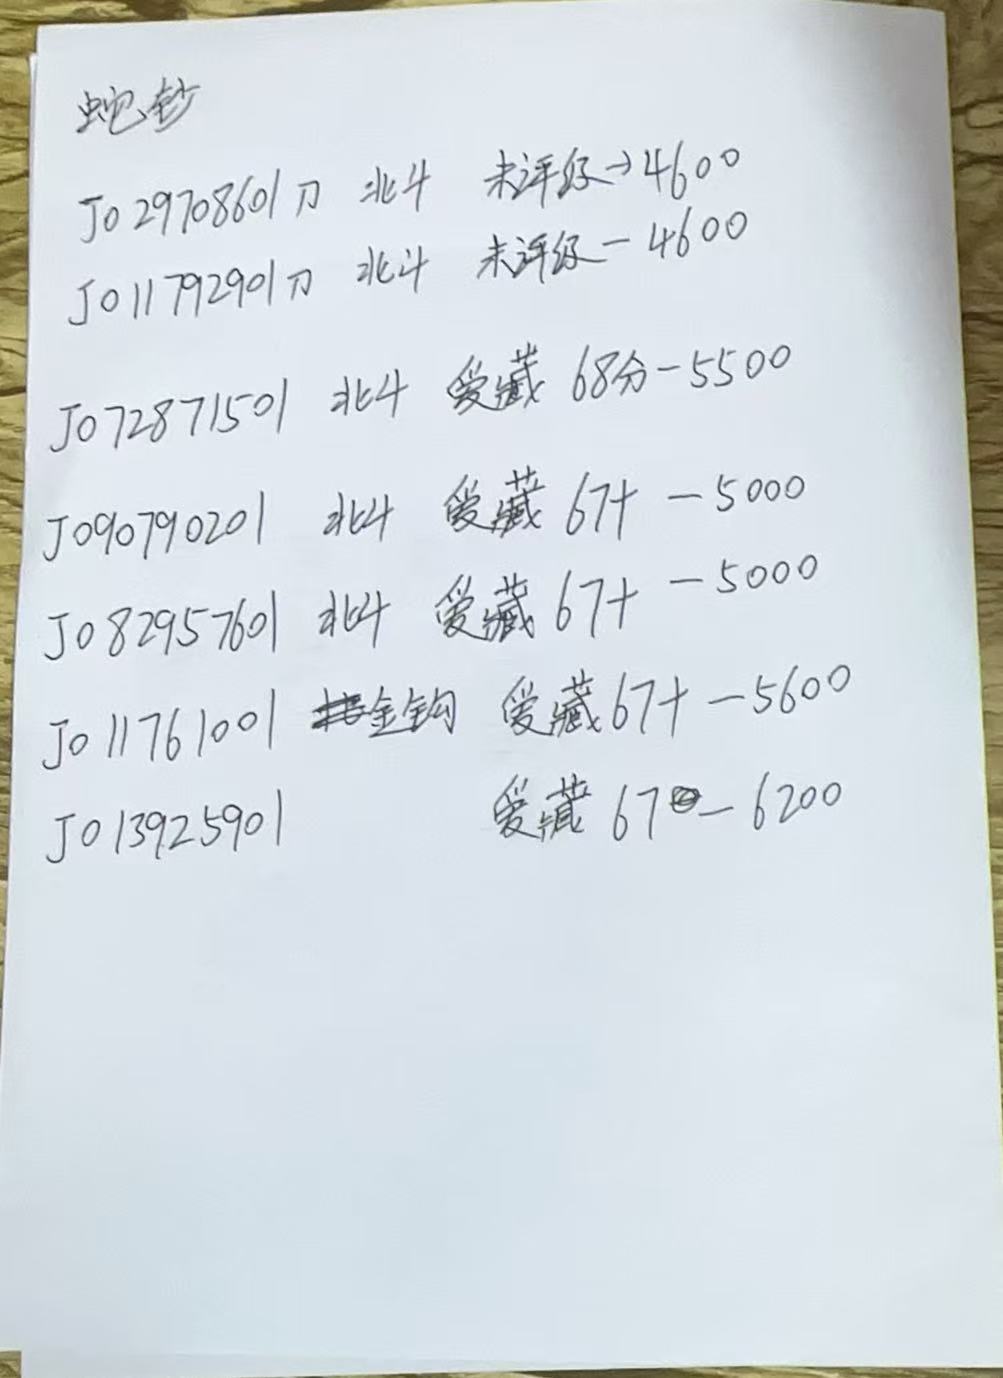 蛇钞
J029708601刀 北斗 未评级→4600
J011792901刀 北斗 未评级－4600
J072871501 北斗 爱藏 68分－5500
J090790201 北斗 爱藏 67+ －5000
J082957601 北斗 爱藏 67+ －5000
J011761001 金钩 爱藏 67+ －5600
J013925901 爱藏 67－6200